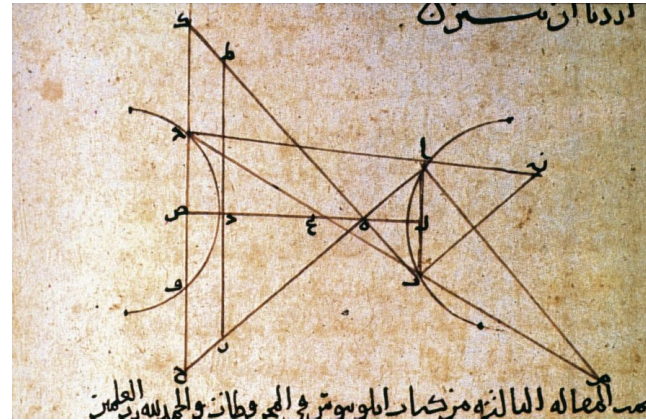 اردنا ان نبين
ك
ط
ا
ص ع ه
و
ح م
تمت المقاله الثالثه من كتاب ابلونيوس في المخروطات والحمد لله رب العلمين